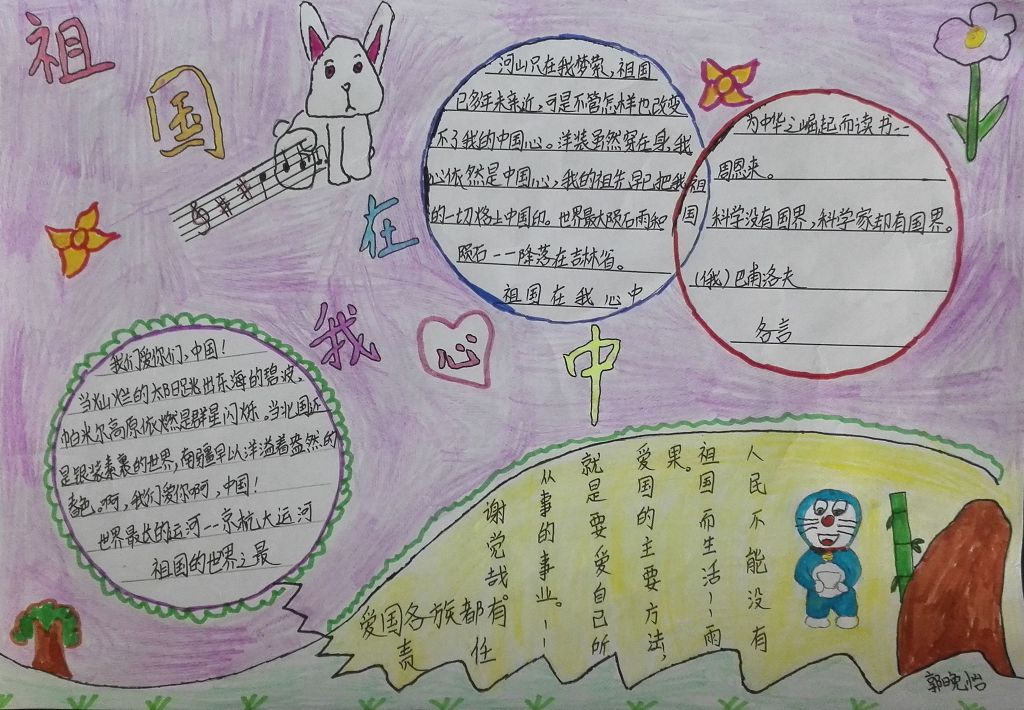 祖国在我心中
河山只在我梦萦，祖国
已多年未亲近，可是不管怎样也改变
不了我的中国心。洋装虽然穿在身，我
心依然是中国心，我的祖先早已把我
的一切烙上中国印。世界最大陨石雨和
陨石--降落在吉林省。
祖国在我心中
祖国
为中华之崛起而读书--
周恩来。
科学没有国界，科学家却有国界。
(俄)巴甫洛夫
名言
我们爱你们，中国！
当灿烂的太阳跳出东海的碧波，
帕米尔高原依燃是群星闪烁。当北国还
是银装素裹的世界，南疆早以洋溢着盎然的
春色。啊，我们爱你啊，中国！
世界最长的运河--京杭大运河
祖国的世界之最
人民不能没有
祖国而生活--雨
果。
爱国的主要方法，
就是要爱自己所
从事的事业。--
谢觉哉。
爱国各族都有
责任
郭晚怡